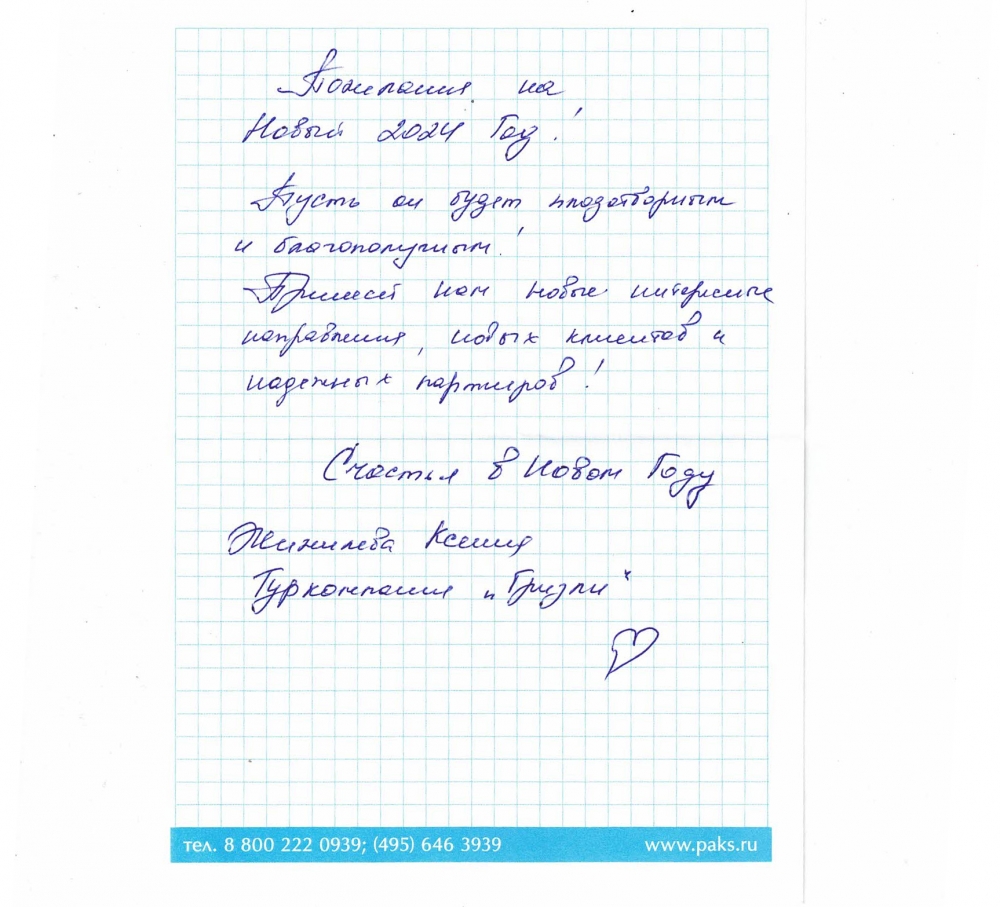 Пожелания на
Новый 2024 Год!
Пусть он будет плодотворным
и благополучным!
Принесет нам новые интересные
направления, новых клиентов и
надежных партнеров!
Счастья в Новом Году
Ксения
Туркомпания „Гризли“
тел. 8 800 222 0939; (495) 646 3939
www.paks.ru